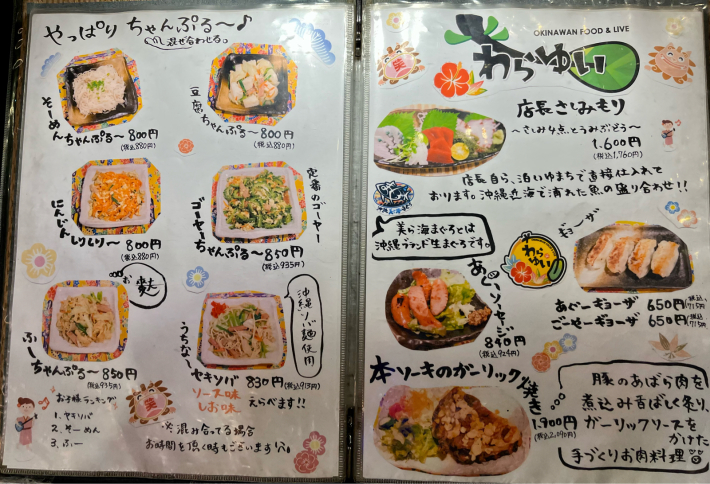 やっぱり ちゃんぷる〜♪
混ぜ合わせる。
そーめん
ちゃんぷる〜 800円
(税込880円)
豆腐
ちゃんぷる〜 800円
(税込880円)
にんじん
しりしり〜 800円
(税込880円)
定番のゴーヤー
ゴーヤー
ちゃんぷる〜 850円
(税込935円)
お麩
ふー
ちゃんぷる〜 850円
(税込935円)
沖縄そば麺使用
うちなー
ヤキソバ 830円
(税込913円)
ソース味
しお味
えらべます!!
お子様ランキング
1. ヤキソバ
2. そーめん
3. ふー
※混み合ってる場合
お時間を頂く時もございます
OKINAWAN FOOD & LIVE
わらゆい
店長さしみもり
〜さしみ4点とうみぶどう〜
1.600円
(税込1,760円)
店長自ら、泊いゆまちで直接仕入れて
おります。沖縄近海で漁れた魚の盛り合わせ!!
美ら海まぐろとは
沖縄ブランド生まぐろです。
わらゆい
ギョーザ
あぐーギョーザ 650円(税込715円)
ごーやーギョーザ 650円(税込715円)
あぐーソーセージ
840円
(税込924円)
本ソーキのガーリック焼き
1.900円
(税込2,090円)
豚のあばら肉を
煮込み香ばしく炙り、
ガーリックソースを
かけた
手づくりお肉料理